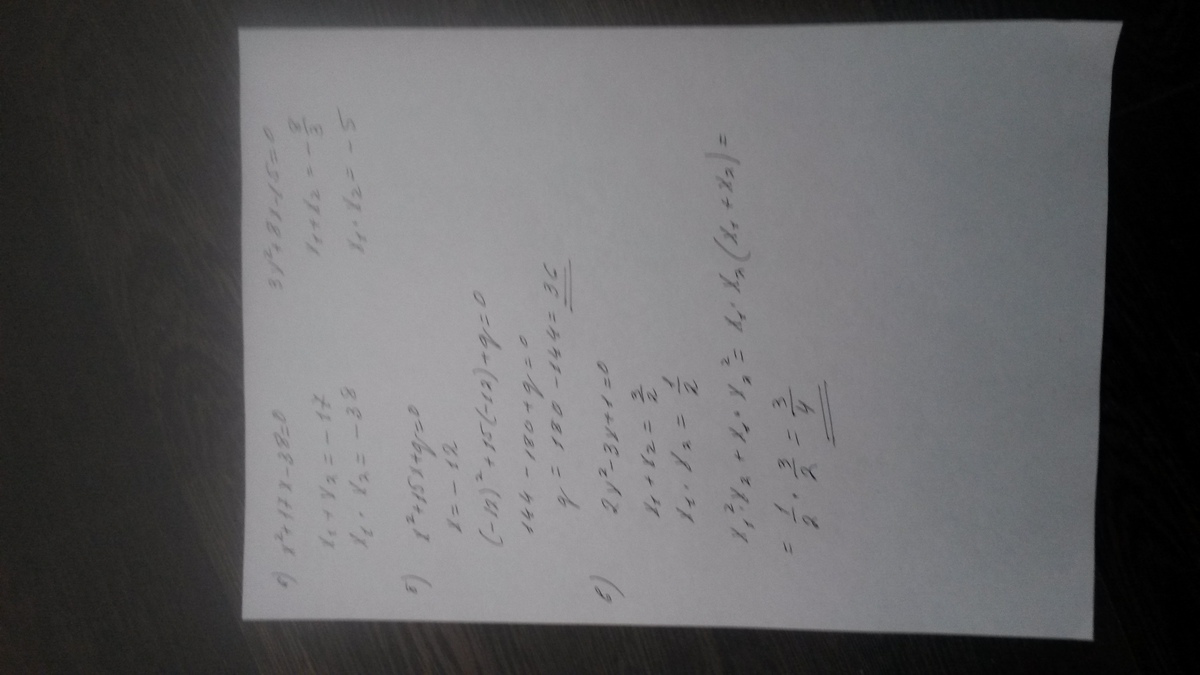 а) x²+17x-38=0 3x²+8x-15=0
x₁+x₂=-17 x₁+x₂=-8/3
x₁·x₂=-38 x₁·x₂=-5
б) x²+15x+q=0
x=-12
(-12)²+15(-12)+q=0
144-180+q=0
q=180-144=36
в) 2x²-3x+1=0
x₁+x₂=3/2
x₁·x₂=1/2
x₁²·x₂+x₁·x₂²=x₁·x₂(x₁+x₂)=
=1/2·3/2=3/4